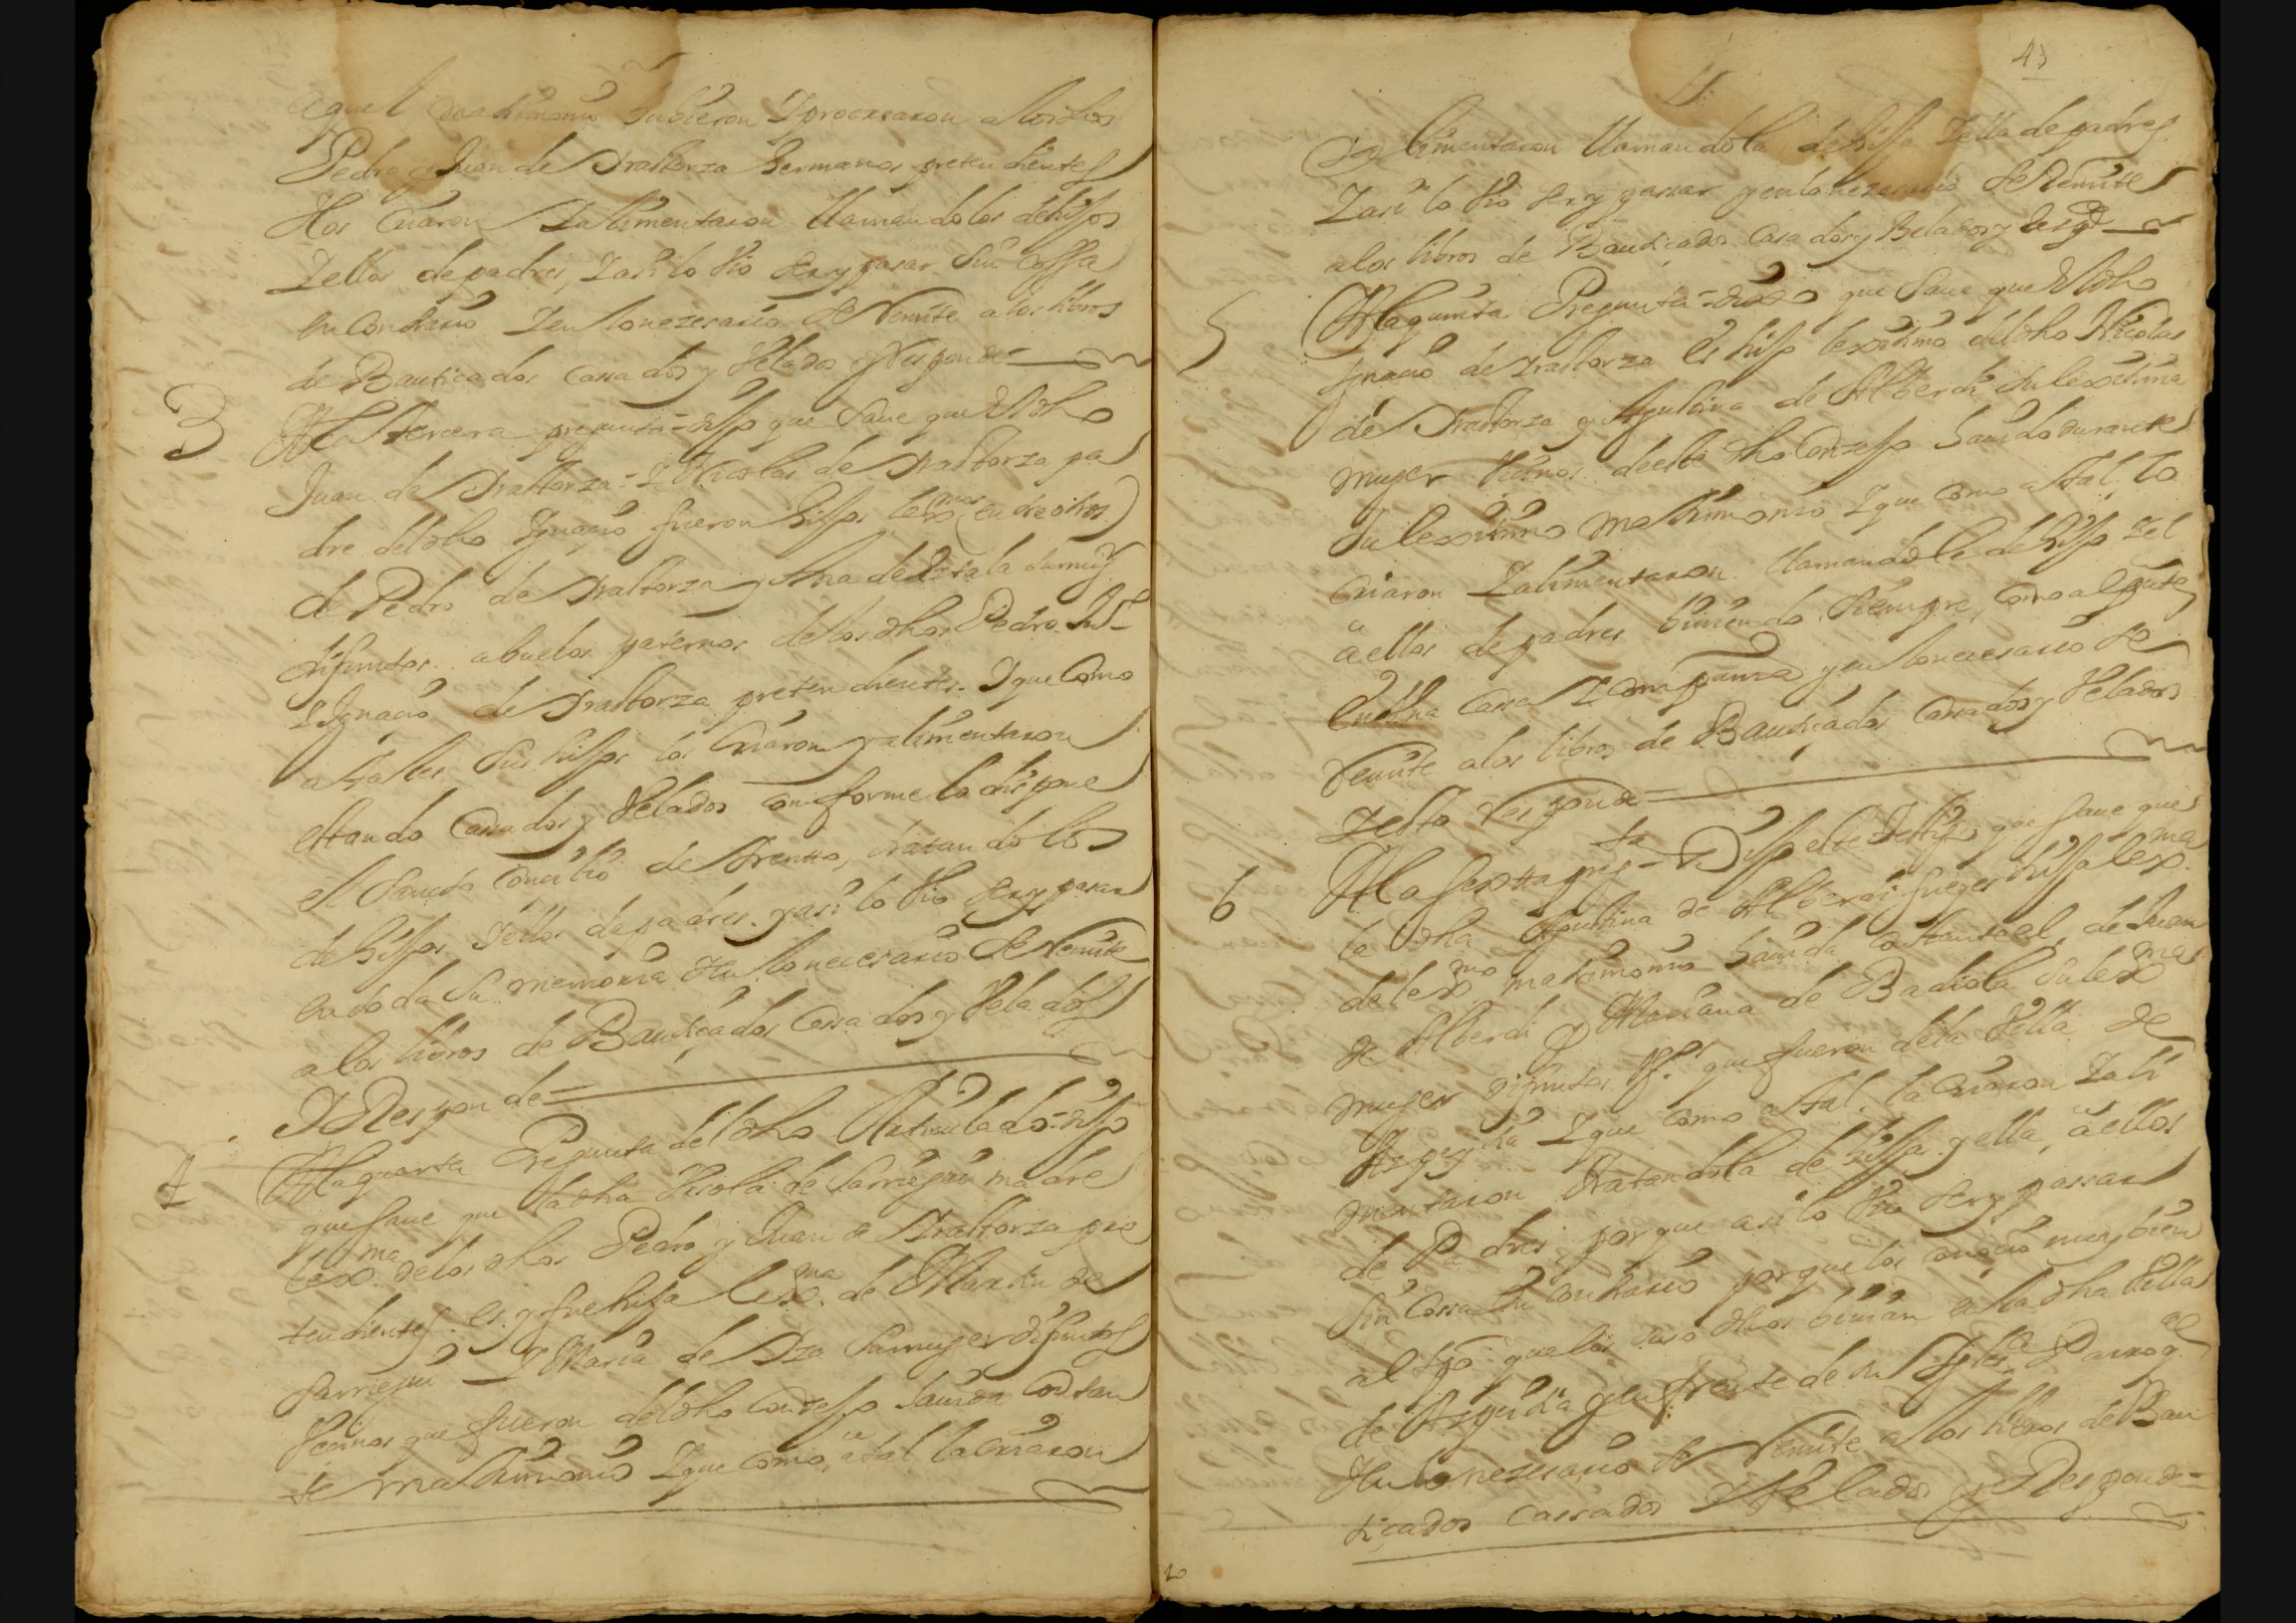 aquel matrimonio tubieron Y procrearon a los dhos
Pedro y Juan de Yraltorza hermanos pretendientes
Y los Criaron Y alimentaron llamandolos de hijos
Y ellos de padres, Y assi lo Vio ser y pasar sin cossa
en Contrario Y en lo nezesario se Remite a los libros
de Bauticados cassados y Velados y Responde =
3 A la tercera pregunta = dijo que saue que el dho
Juan de Yraltorza = Y Nicolas de Yraltorza pa
dre del dho Ygnacio fueron hijos lexmos (entre otros)
de Pedro de Yraltorza y Ana de Ybala su muger
difuntos abuelos paternos de los dhos Pedro Juo
e Ygnacio de Yraltorza pretendientes. Y que Como
a tales sus hijos los Criaron y alimentaron
estando Cassados y Velados conforme lo dispone
el Sancto Concilio de Trento, tratandolos
de hijos Y ellos de padres. y assi lo Vio ser y pasar
en toda su memoria Y en lo necesario se Remite
a los libros de Bauticados Cassados y Velados
Y Responde =
4 A la quarta Pregunta del dho Articulado = dijo
que saue que la dha Nicola de Sarriegui madre
lexma de los dhos Pedro y Juan de Yraltorza pre
tendientes es y fue hija lexma de Martin de
Sarriegui = Y Maria de Yza su muger difuntos
Vecinos que fueron del dho Conzejo hauida Constan
te matrimonio Y que como a tal la Criaron
43
Y alimentaron llamandola de hija Y ella de padres
Y assi lo Vio ser y passar y en lo nezesario se Remite
a los libros de Bauticados Casados y Belados y Respde
5 A la quinta Pregunta = dixo que saue que el dho
Ygnacio de Yraltorza es hijo lexitimo del dho Nicolas
de Yraltorza y Agustina de Alberdi su lexitima
muger Vecinos deeste dho Conzejo hauido durante
su lexitimo matrimonio Y que como a tal lo
Criaron Y alimentaron llamandole de hijo Y el
a ellos de padres biuiendo siempre, como al prste
en dha Cassa Y Compañia y en lo necesario se
Remite a los libros de Bauticados Cassados y Velados
Y esto Responde =
6 A la sexta pregta = Dijo este testigo que saue que
la dha Agustina de Alberdi fue y es hija lexma
de lexmo matrimonio hauida Constante el, de Juan
de Alberdi y Mariana de Badiola su lexma
muger difuntos Vos que fueron dela Villa de
Azpeytia Y que como a tal la Criaron Y ali
mentaron tratandola de hija y ella, a ellos
de Padres porque assi lo Vio ser y passar
sin Cossa en contrario porque los conocio muy bien
al tpo que los suso dhos biuian en la dha Villa
de Azpeitia y en frente de su Yglesia Parroql
Y en lo nezesario se Remite a los libros de Bau
ticados cassados Y Velados y Responde =